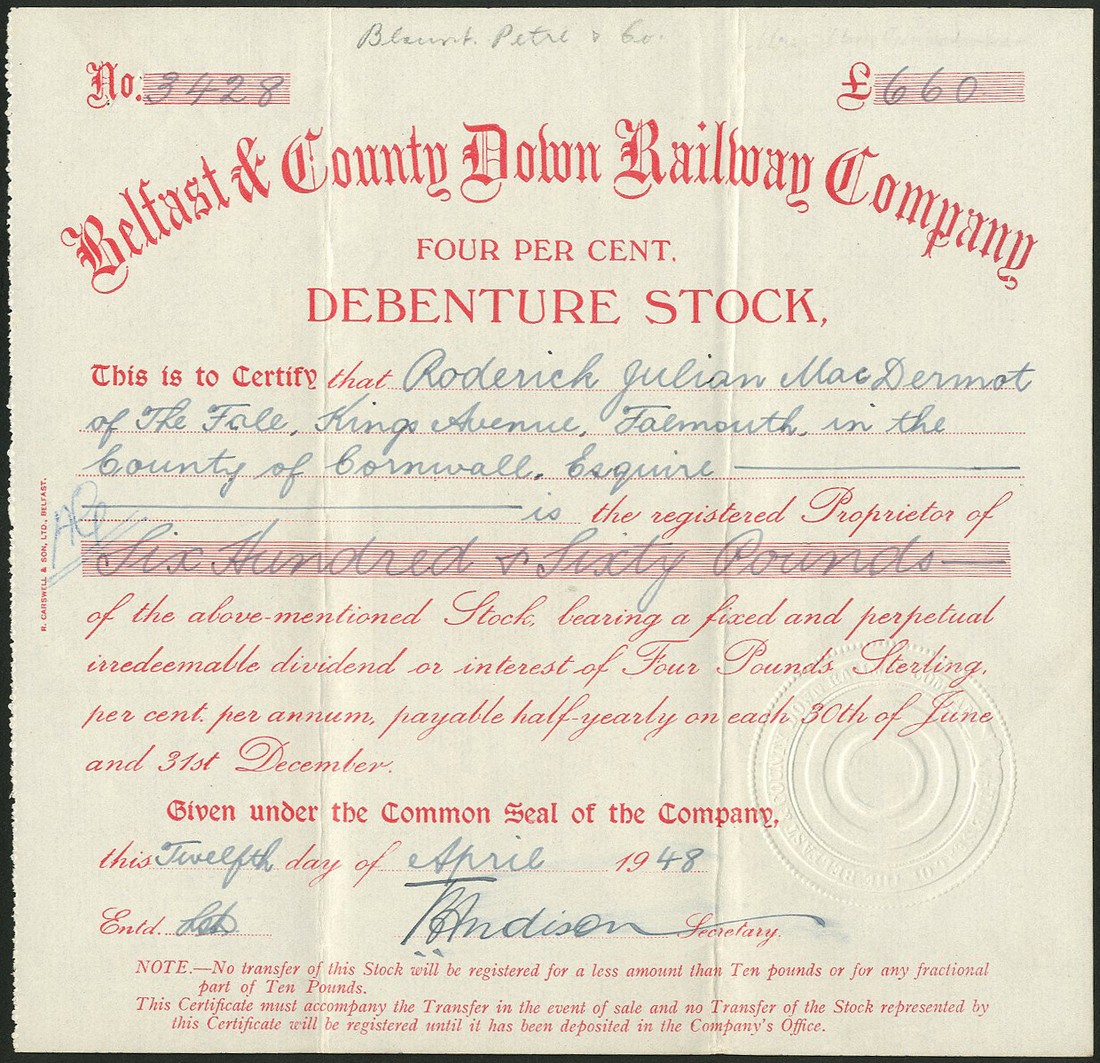 Blount. Petre & Co.
No. 3428 £660
Belfast & County Down Railway Company
FOUR PER CENT.
DEBENTURE STOCK,
This is to Certify that Roderick Julian MacDermot
of The Fale, Kings Avenue, Falmouth, in the
County of Cornwall, Esquire
is the registered Proprietor of
Six Hundred & Sixty Pounds
of the above-mentioned Stock, bearing a fixed and perpetual
irredeemable dividend or interest of Four Pounds Sterling,
per cent. per annum, payable half-yearly on each 30th of June
and 31st December.
Given under the Common Seal of the Company,
this Twelfth day of April 1948
Entd. Secretary.
NOTE.—No transfer of this Stock will be registered for a less amount than Ten pounds or for any fractional
part of Ten Pounds.
This Certificate must accompany the Transfer in the event of sale and no Transfer of the Stock represented by
this Certificate will be registered until it has been deposited in the Company's Office.
R. CARSWELL & SON, LTD., BELFAST.